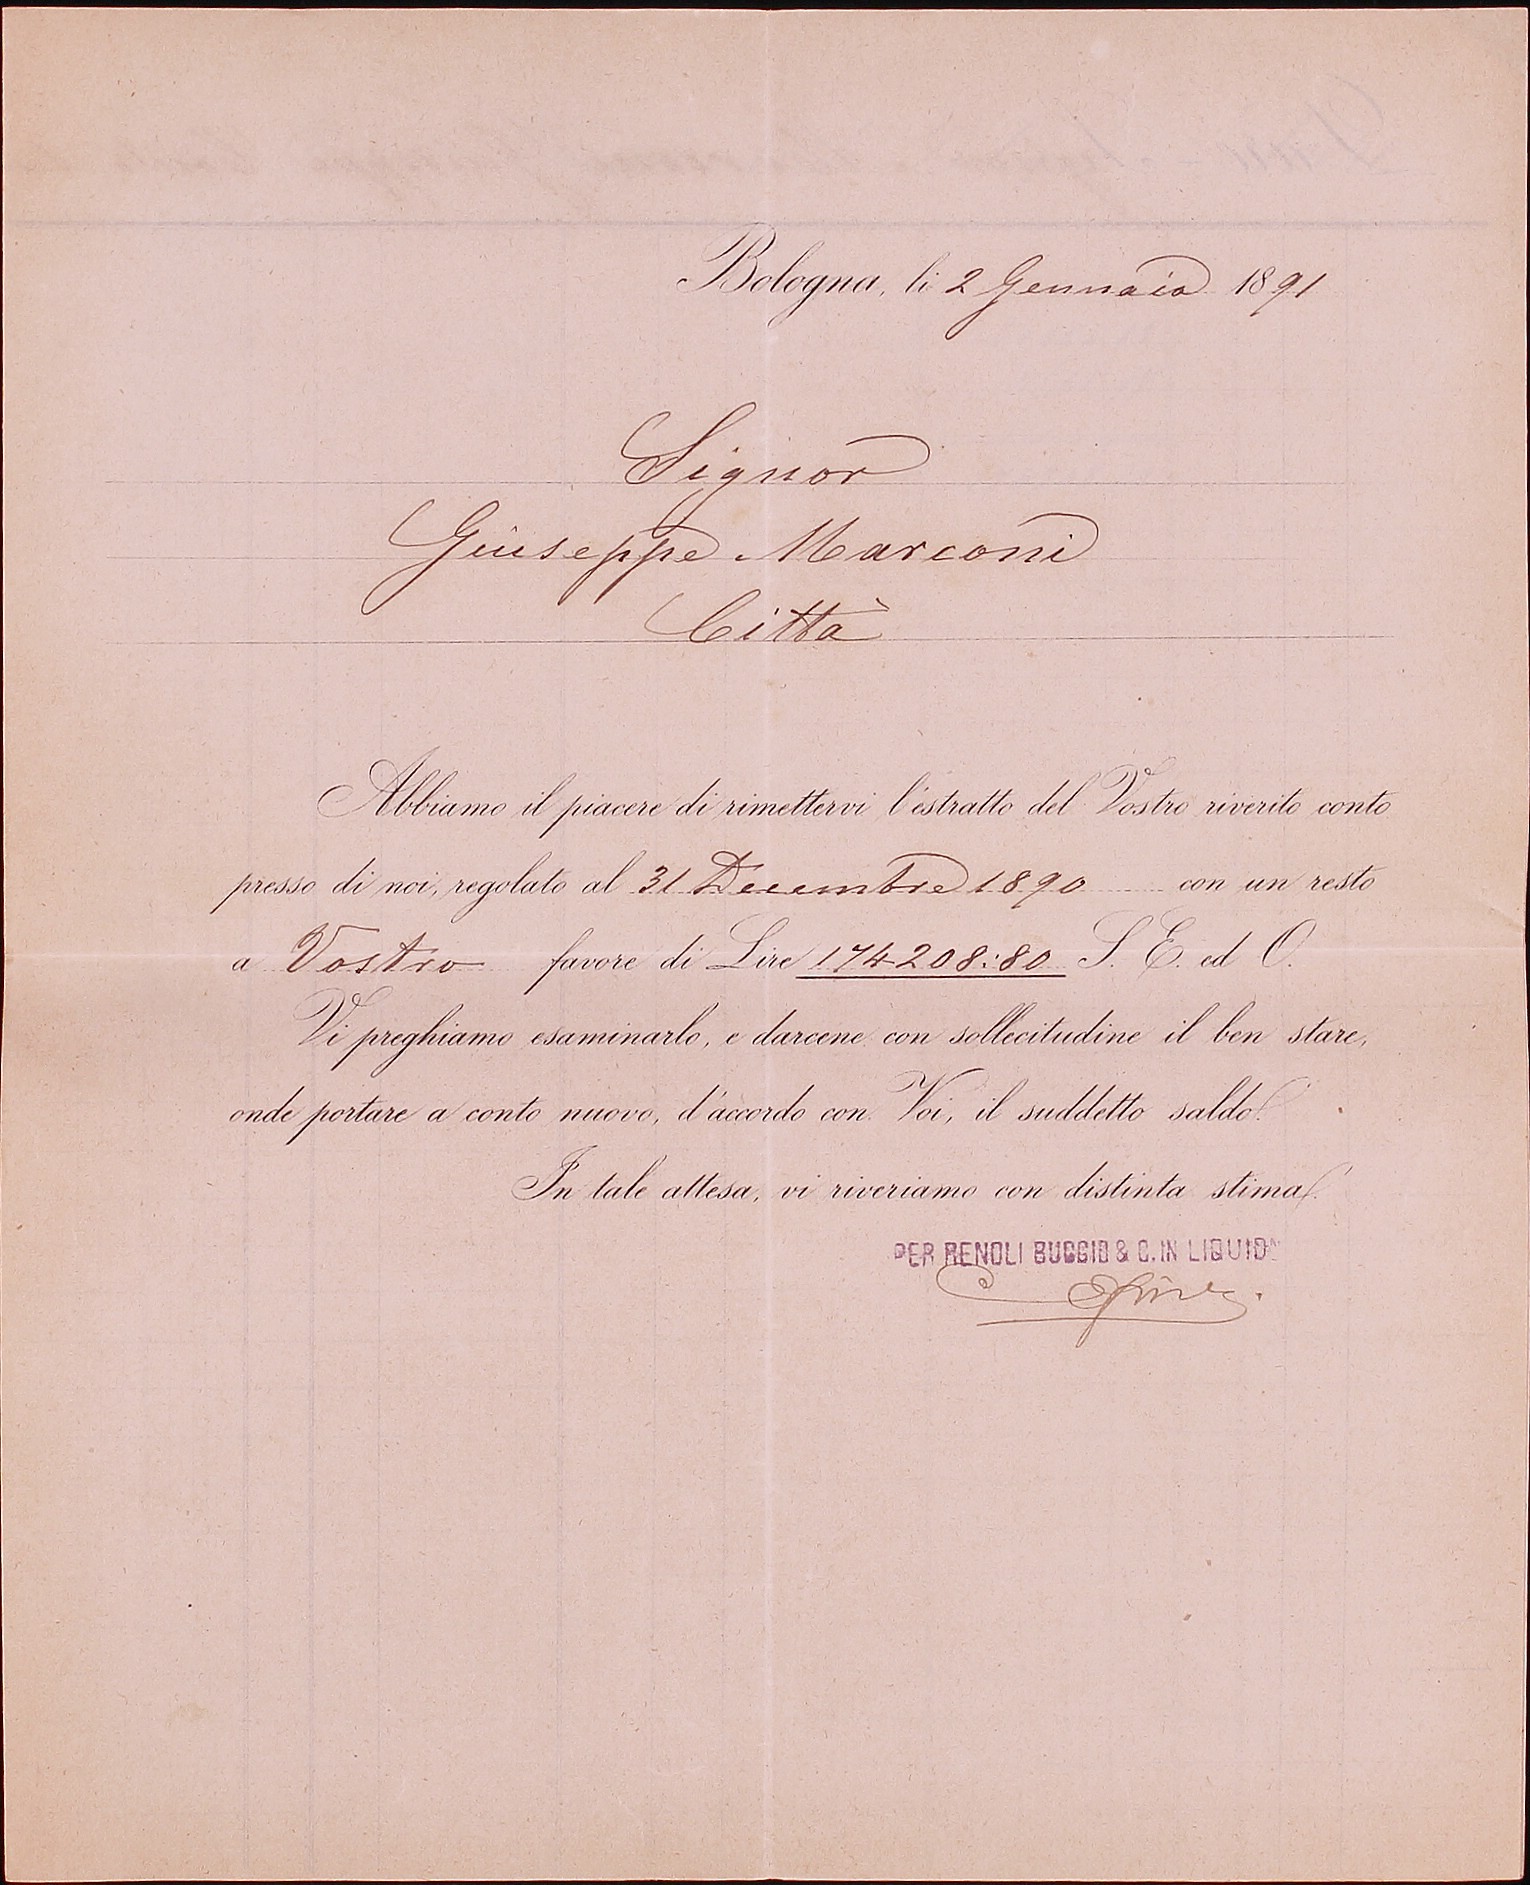 Bologna, li 2 Gennaio 1891
Signor
Giuseppe Marconi
Città
Abbiamo il piacere di rimettervi l'estratto del Vostro riverito conto
presso di noi, regolato al 31 Decembre 1890 con un resto
a Vostro favore di Lire 174208:80 S. E. ed O.
Vi preghiamo esaminarlo, e darcene con sollecitudine il ben stare,
onde portare a conto nuovo, d'accordo con Voi, il suddetto saldo.
In tale attesa, vi riveriamo con distinta stima.
PER RENOLI BUGGIO & C. IN LIQUID